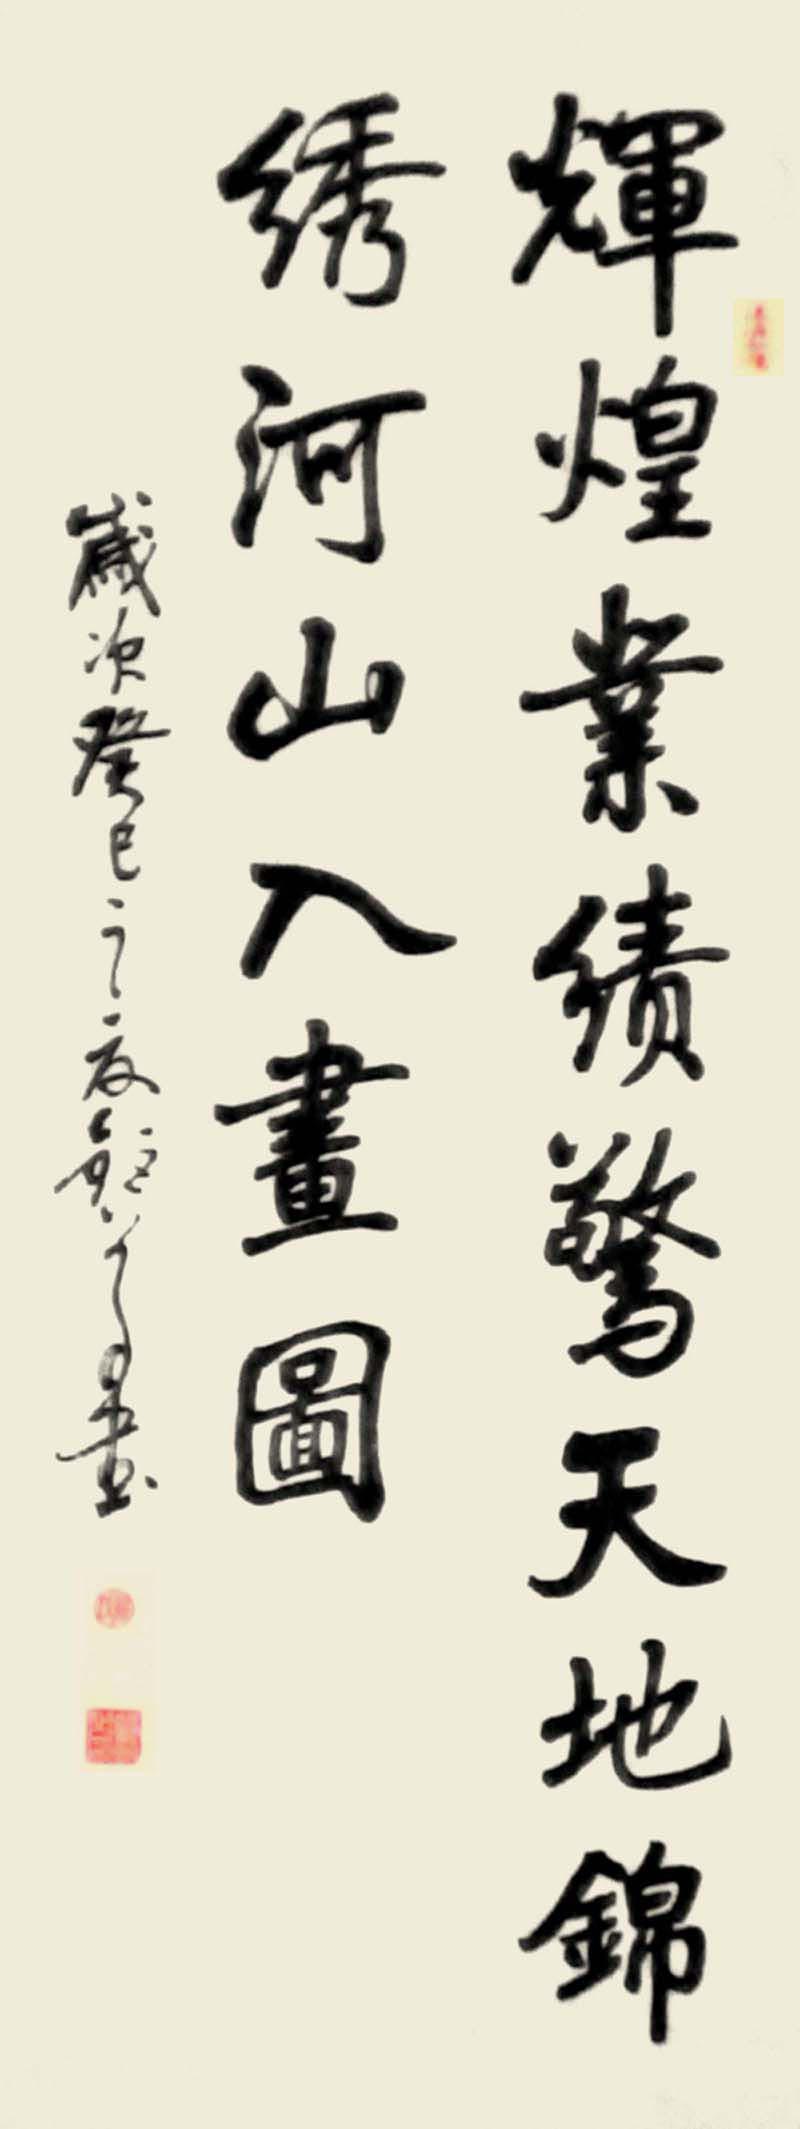 輝煌業績驚天地錦
绣河山入畫圖
歲次癸巳之夏